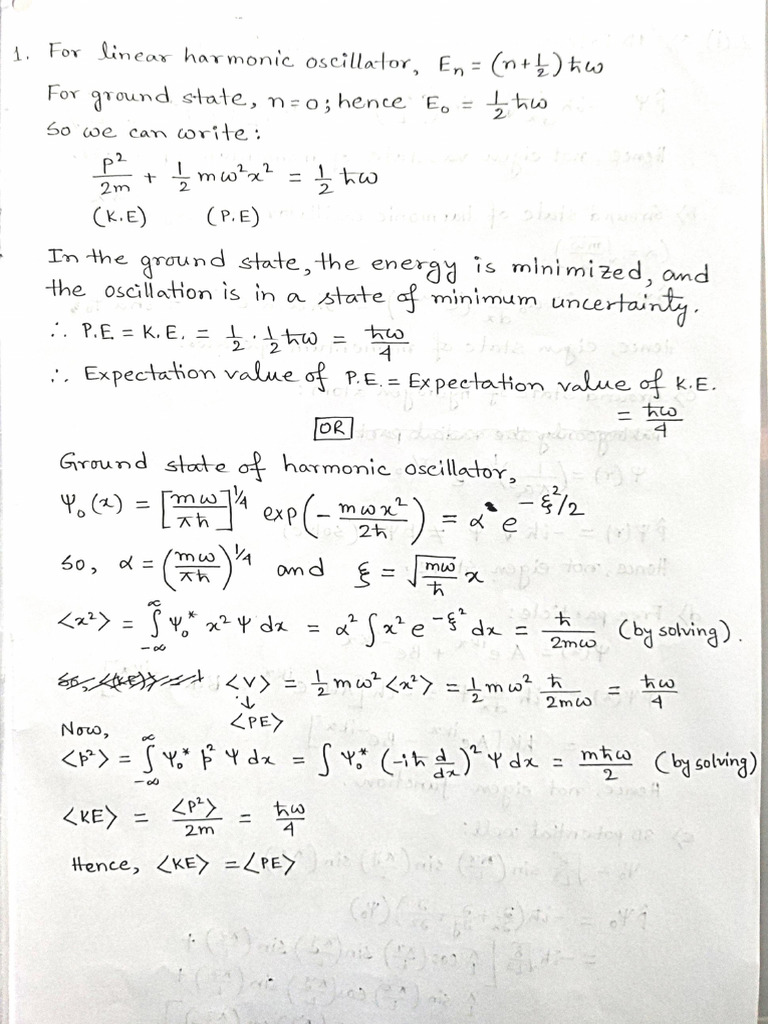 1. For linear harmonic oscillator, Eₙ = (n+½)ħω
For ground state, n=0; hence E₀ = ½ħω
So we can write:
p²/2m + ½mω²x² = ½ħω
(K.E) (P.E)
In the ground state, the energy is minimized, and
the oscillation is in a state of minimum uncertainty.
∴ P.E = K.E. = ½·½ħω = ħω/4
∴ Expectation value of P.E. = Expectation value of K.E.
= ħω/4
OR
Ground state of harmonic oscillator,
Ψ₀(x) = [mω/πħ]^¼ exp(-mωx²/2ħ) = α e^(-ξ²/2)
So, α = (mω/πħ)^¼ and ξ = √(mω/ħ) x
<x²> = ∫_{-∞}^{∞} Ψ₀* x² Ψ dx = α² ∫x² e^(-ξ²) dx = ħ/2mω (by solving).
<V> = ½mω²<x²> = ½mω² ħ/2mω = ħω/4
↓
<PE>
Now,
<p²> = ∫_{-∞}^{∞} Ψ₀* p² Ψ dx = ∫Ψ₀* (-iħ d/dx)² Ψ dx = mħω/2 (by solving)
<KE> = <p²>/2m = ħω/4
Hence, <KE> = <PE>